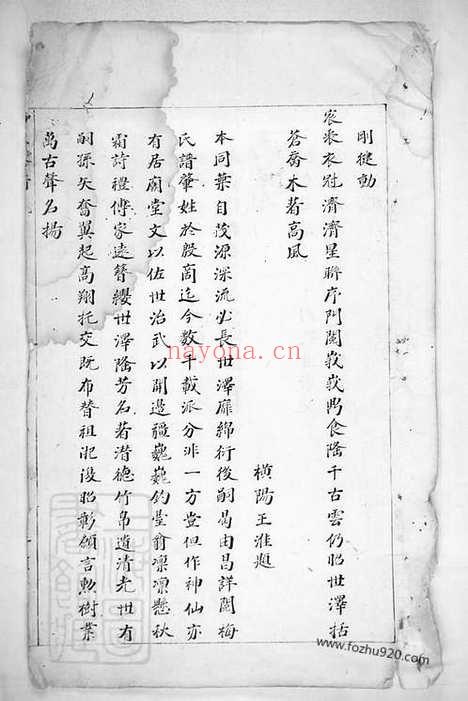 剛健動
袞裘衣冠濟濟星聯序門闌峩峩鼎食隆千古雲仍昭世澤括
蒼喬木著高風
橫陽王淮題
本同葉自茂源深流必長世澤靡綿衍後嗣曷由昌詳閱梅
氏譜肇姓於殷商迄今数千載派分非一方豈但作神仙亦
有居廟堂文以佐世治武以開邊疆巍巍釣臺翁凛凛懸秋
霜詩禮傳家遠簪纓世澤隆芳名著潜德竹帛遺清光世有
嗣孫矢奮翼起高翔托交既布替祖泥設昭彰願言勲樹業
萬古聲名揚
nayona.cn
www.fozhu920.com